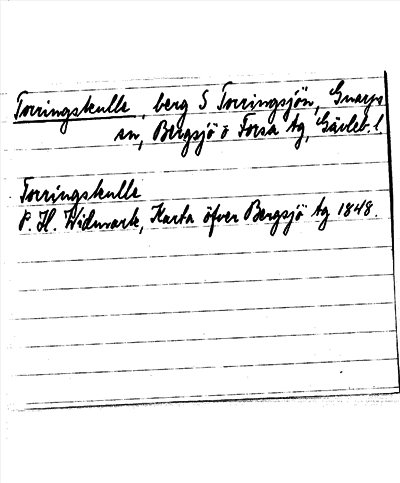 Torringskulle, berg S Torringsjön, Gnarps
sn, Bergsjö o Forsa tg, Gävleb. l
Torringskulle
P. H. Widmark, Karta öfver Bergsjö tg 1848.